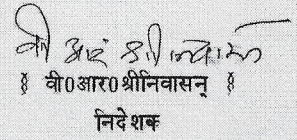 वी आर श्रीनिवासन
॥ वी०आर०श्रीनिवासन् ॥
निदेशक